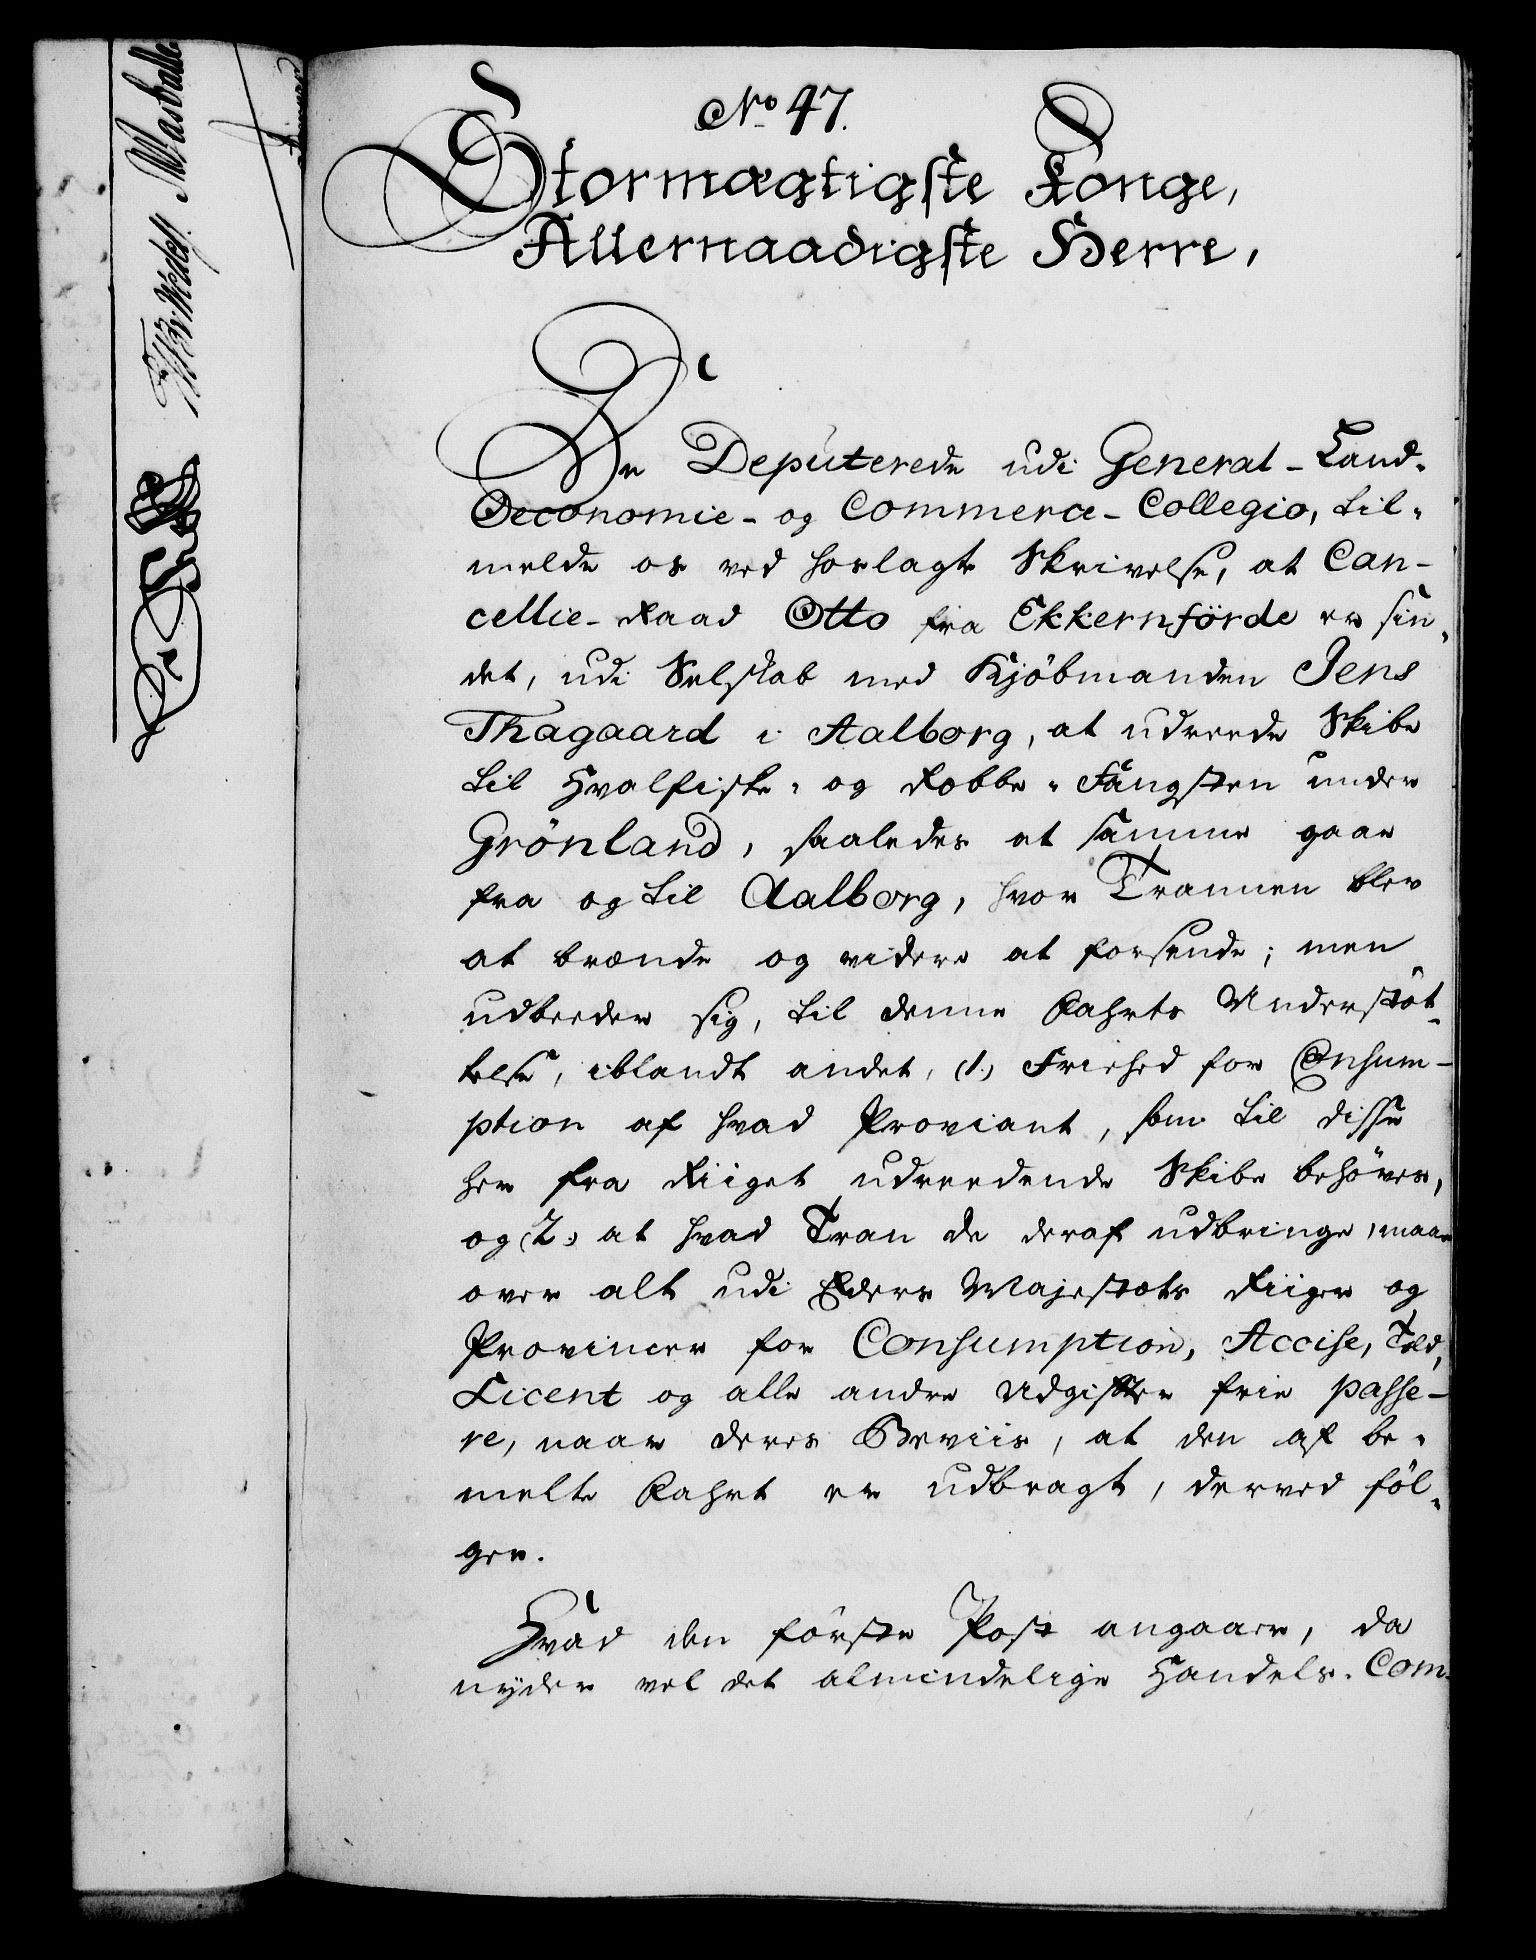 No 47.
Stormægtigste Konge,
Allernaadigste Herre,
De Deputerede udi General-Land-
Oeconomie- og Commerce-Collegio, til-
melde os ved hoslagte Skrivelse, at Can-
cellie-Raad Otto fra Ekkernförde er sin-
det, udi Selskab med Kjöbmanden Jens
Thagaard i Aalborg, at udreede Skibe
til Hvalfiske- og Robbe-Fangsten under
Grönland, saaledes at samme gaae
fra og til Aalborg, hvor Trannen blev
at brænde og videre at forsende; men
udbeeder sig, til denne Fahrts Understöt-
telse, iblandt andet, (1.) Friehed for Consum-
ption af hvad Proviant, som til disse
her fra Riiget udreedende Skibe behöves,
og (2.) at hvad Tran de deraf udbringe, maae
over alt udi Eders Majestæts Riiger og
Provincer for Consumption, Accise, Told,
Licent og alle andre Udgifter frie passe-
re, naar deres Beviis, at den af be-
melte Fahrt er udbragt, derved föl-
ger.
Hvad den förste Post angaaer, da
nyder vel det almindelige Handels-Com-